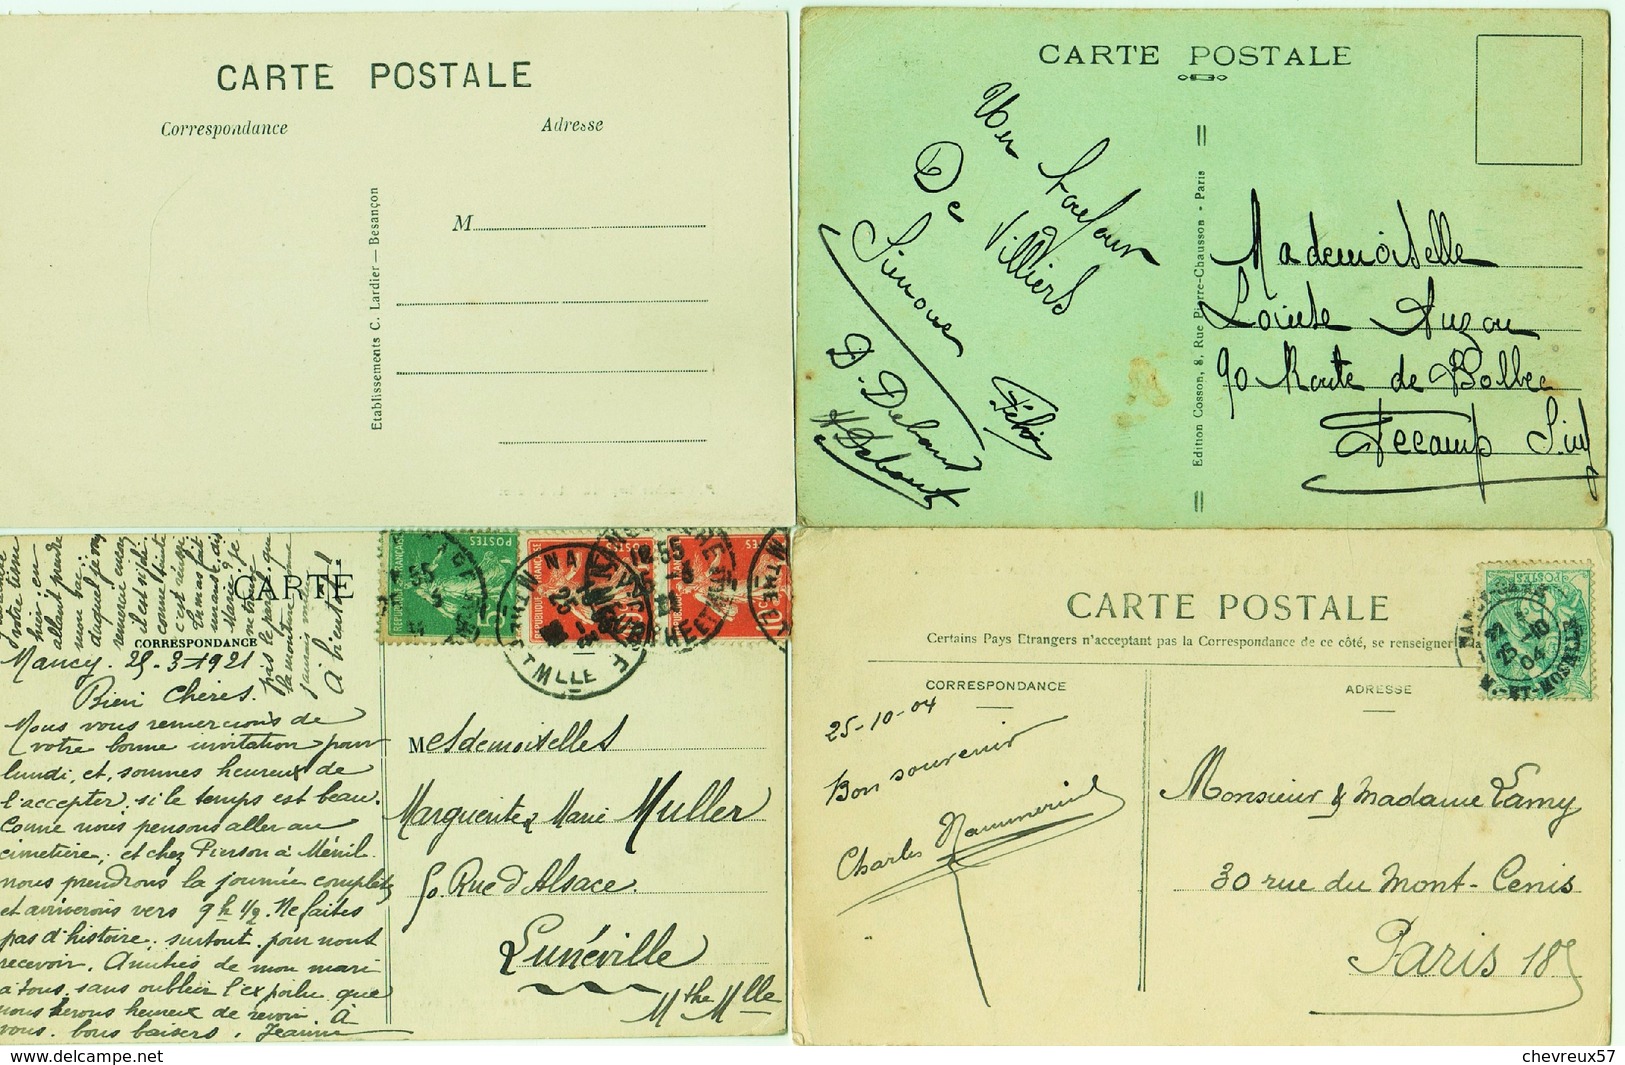 CARTE POSTALE
Correspondance
Adresse
M
Etablissements C. Lardier — Besançon
CARTE POSTALE
Un bonjour
De Villiers
Simone
D. Debout
H Debout
Edition Cosson, 8, Rue Pierre-Chausson - Paris
Mademoiselle
Auzou
90 Route de Bolbec
Fecamp S. inf
CARTE
CORRESPONDANCE
Nancy. 25-3-1921
Bien Chères.
Nous vous remercions de
votre bonne invitation pour
lundi, et, sommes heureux de
l'accepter, si le temps est beau.
Comme nous pensons aller au
cimetière, et chez Pierson à Ménil
nous prendrons la journée complète
et arriverons vers 9h 1/2. Ne faites
pas d'histoire, surtout, pour nous
recevoir. Amitiés de mon mari
à tous, sans oublier l'ex poilu que
nous serons heureux de revoir. À
vous, bons baisers. Jeanne
À bientôt!
Mesdemoiselles
Marguerite & Marie Muller
50 Rue d'Alsace.
Lunéville
Mthe Mlle
CARTE POSTALE
Certains Pays Etrangers n'acceptant pas la Correspondance de ce côté, se renseigner
CORRESPONDANCE
ADRESSE
25-10-04
Bon souvenir
Charles
Monsieur & Madame Lamy
30 rue du Mont-Cenis
Paris 18e
delcampe.net
chevreux57